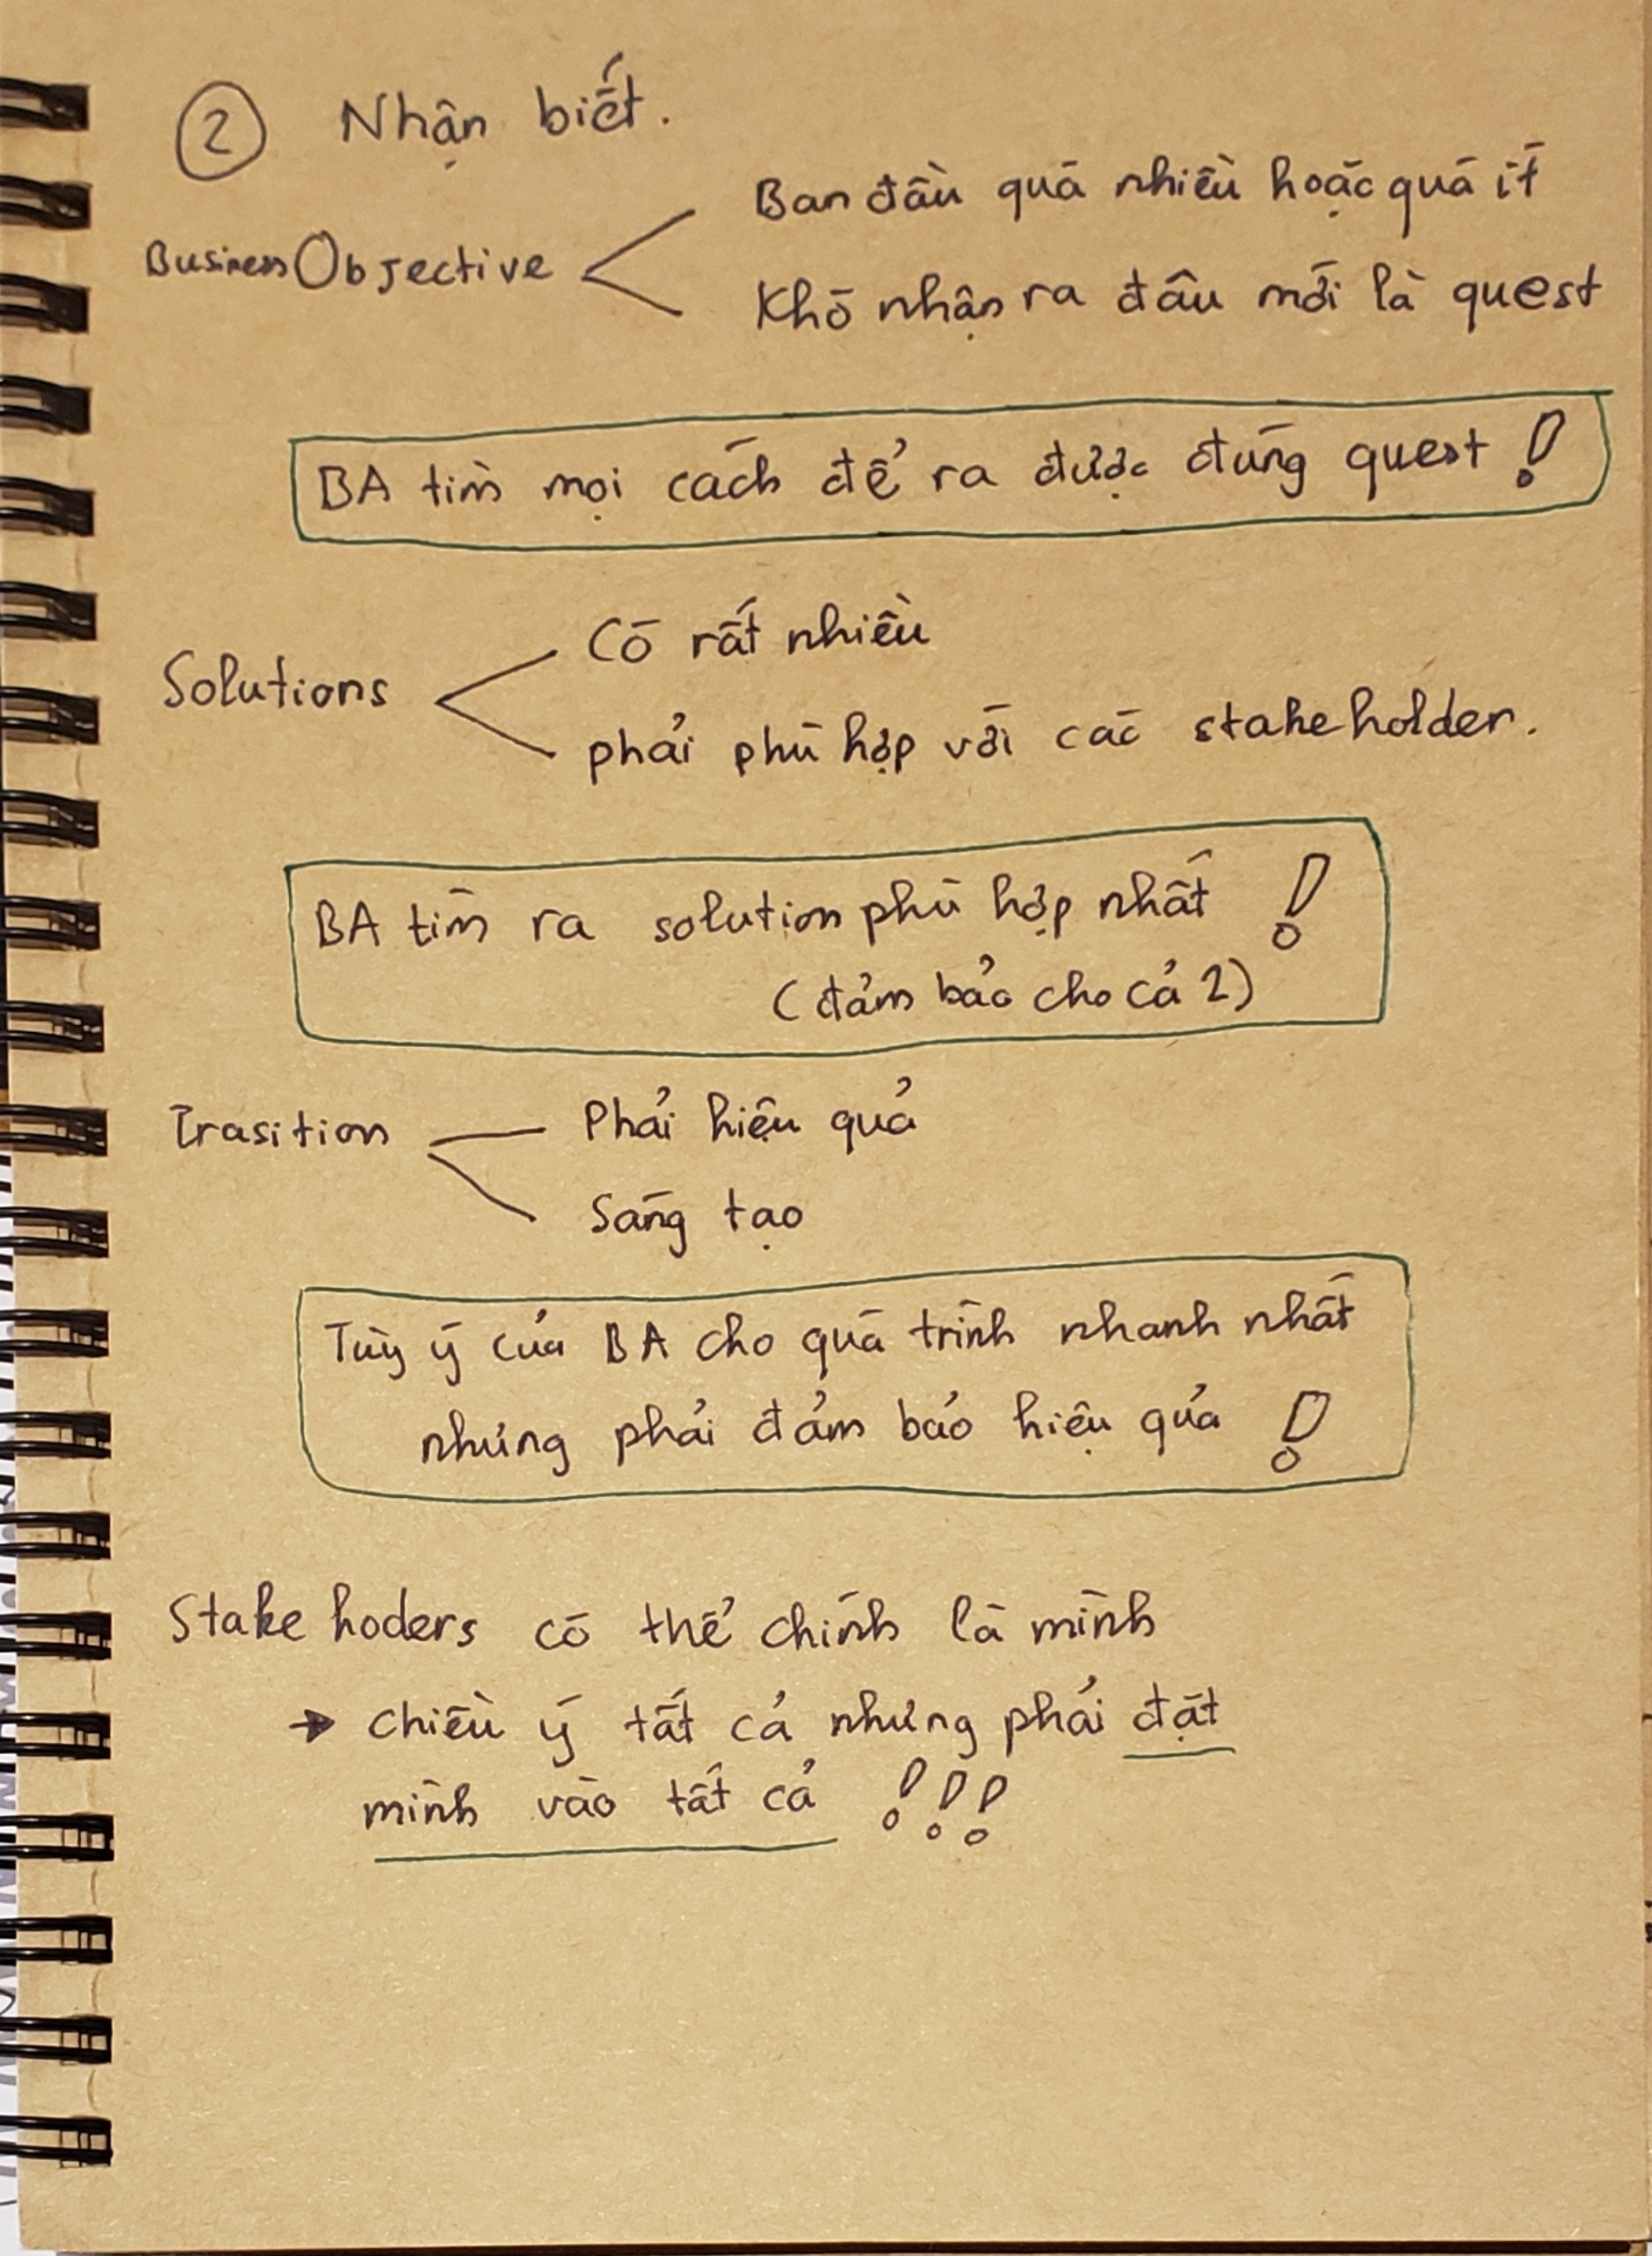 ② Nhận biết.
Business Objective
Ban đầu quá nhiều hoặc quá ít
Khó nhận ra đâu mới là quest
BA tìm mọi cách để ra được đúng quest !
Solutions
Có rất nhiều
phải phù hợp với các stakeholder.
BA tìm ra solution phù hợp nhất !
(đảm bảo cho cả 2)
Trasition
Phải hiệu quả
Sáng tạo
Tùy ý của BA cho quá trình nhanh nhất
nhưng phải đảm bảo hiệu quả !
Stake hoders có thể chính là mình
→ chiều ý tất cả nhưng phải đặt
mình vào tất cả !!!